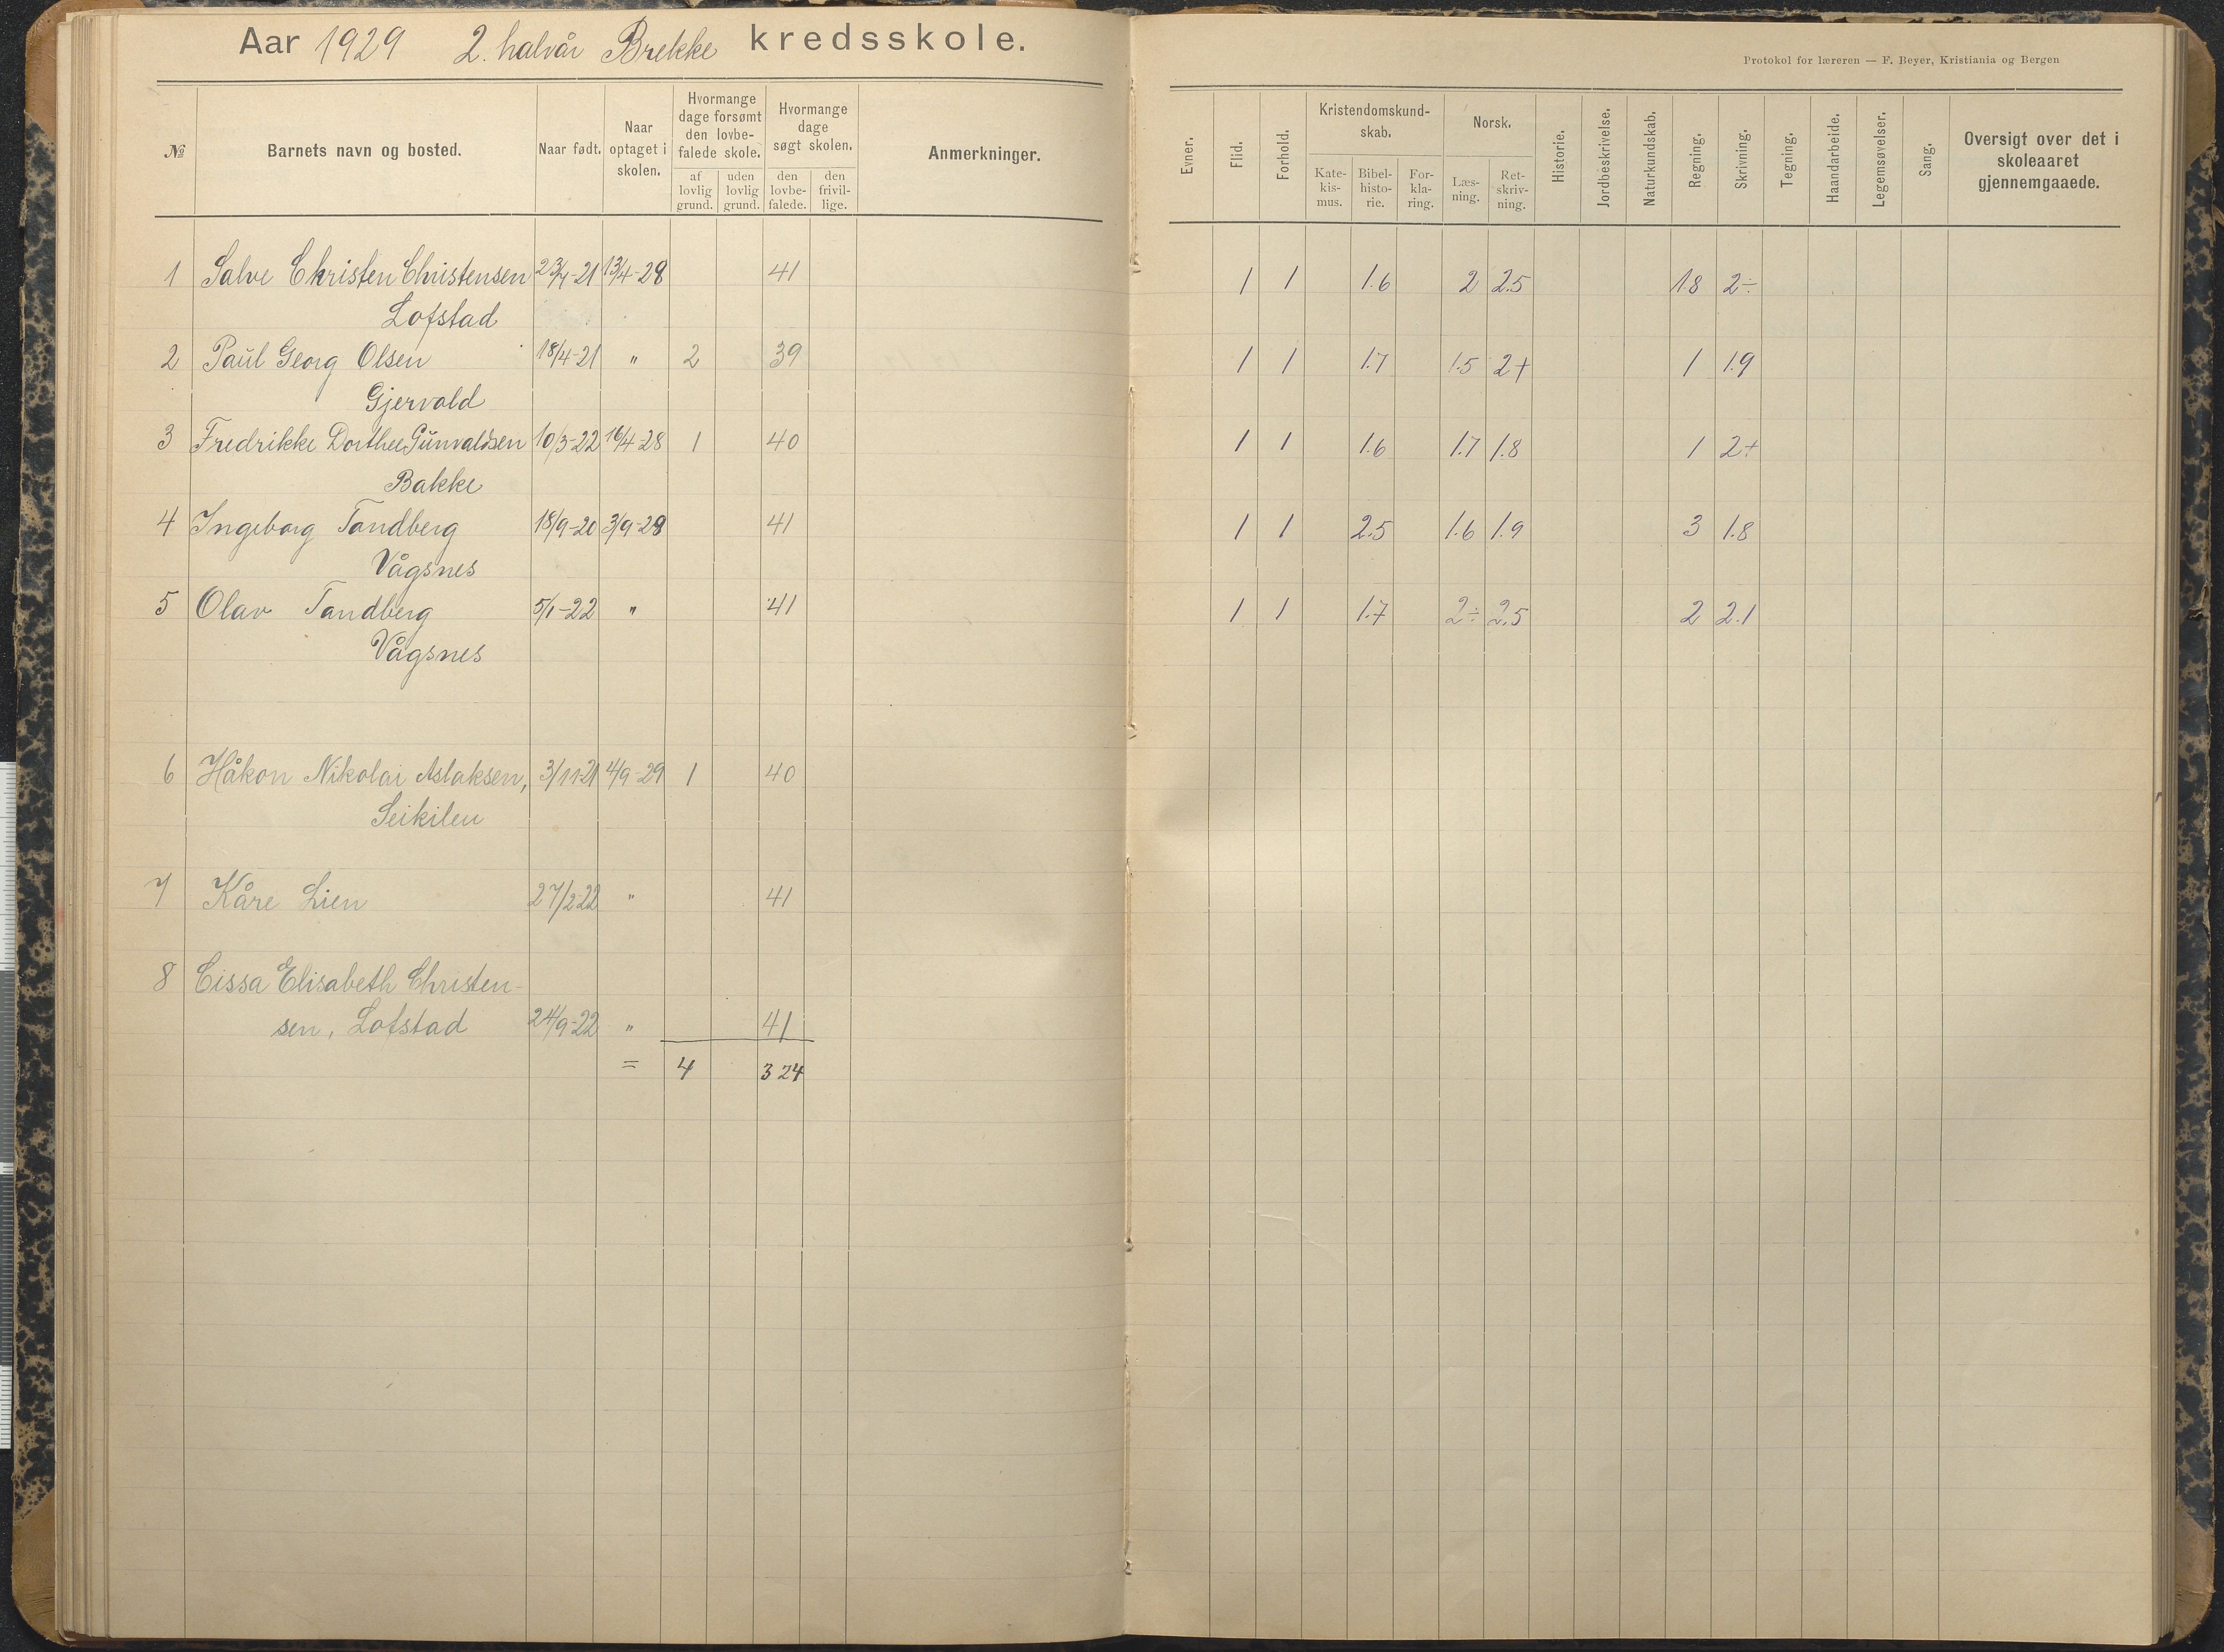 Aar 1929 2. halvår Brekke kredsskole.
Protokol for læreren — F. Beyer, Kristiania og Bergen
№ Barnets navn og bosted. Naar født. Naar optaget i skolen. Hvormange dage forsømt den lovbefalede skole. af lovlig grund. uden lovlig grund. Hvormange dage søgt skolen. den lovbefalede. den frivillige. Anmerkninger.
Evner. Flid. Forhold. Kristendomskundskab. Katekismus. Bibelhistorie. Forklaring. Norsk. Læsning. Retskrivning. Historie. Jordbeskrivelse. Naturkundskab. Regning. Skrivning. Tegning. Haandarbeide. Legemsøvelser. Sang. Oversigt over det i skoleaaret gjennemgaaede.
1 Salve Christen Christensen 23/7-21 13/4-28 41 1 1 1.6 2 2.5 1.8 2÷
Lofstad
2 Paul Georg Olsen 18/4-21 " 2 39 1 1 1.7 1.5 2+ 1 1.9
Gjervold
3 Fredrikke Dorthee Gunvaldsen 10/3-22 16/4-28 1 40 1 1 1.6 1.7 1.8 1 2+
Bakke
4 Ingeborg Tandberg 18/9-20 3/9-28 41 1 1 2.5 1.6 1.9 3 1.8
Vågsnes
5 Olav Tandberg 5/1-22 " 41 1 1 1.7 2÷ 2.5 2 2.1
Vågsnes
6 Håkon Nikolai Aslaksen, 3/11-21 4/9-29 1 40
Seikilen
7 Kåre Lien 27/2-22 " 41
8 Cissa Elisabeth Christen-
sen, Lofstad 24/9-22 " 41
= 4 324